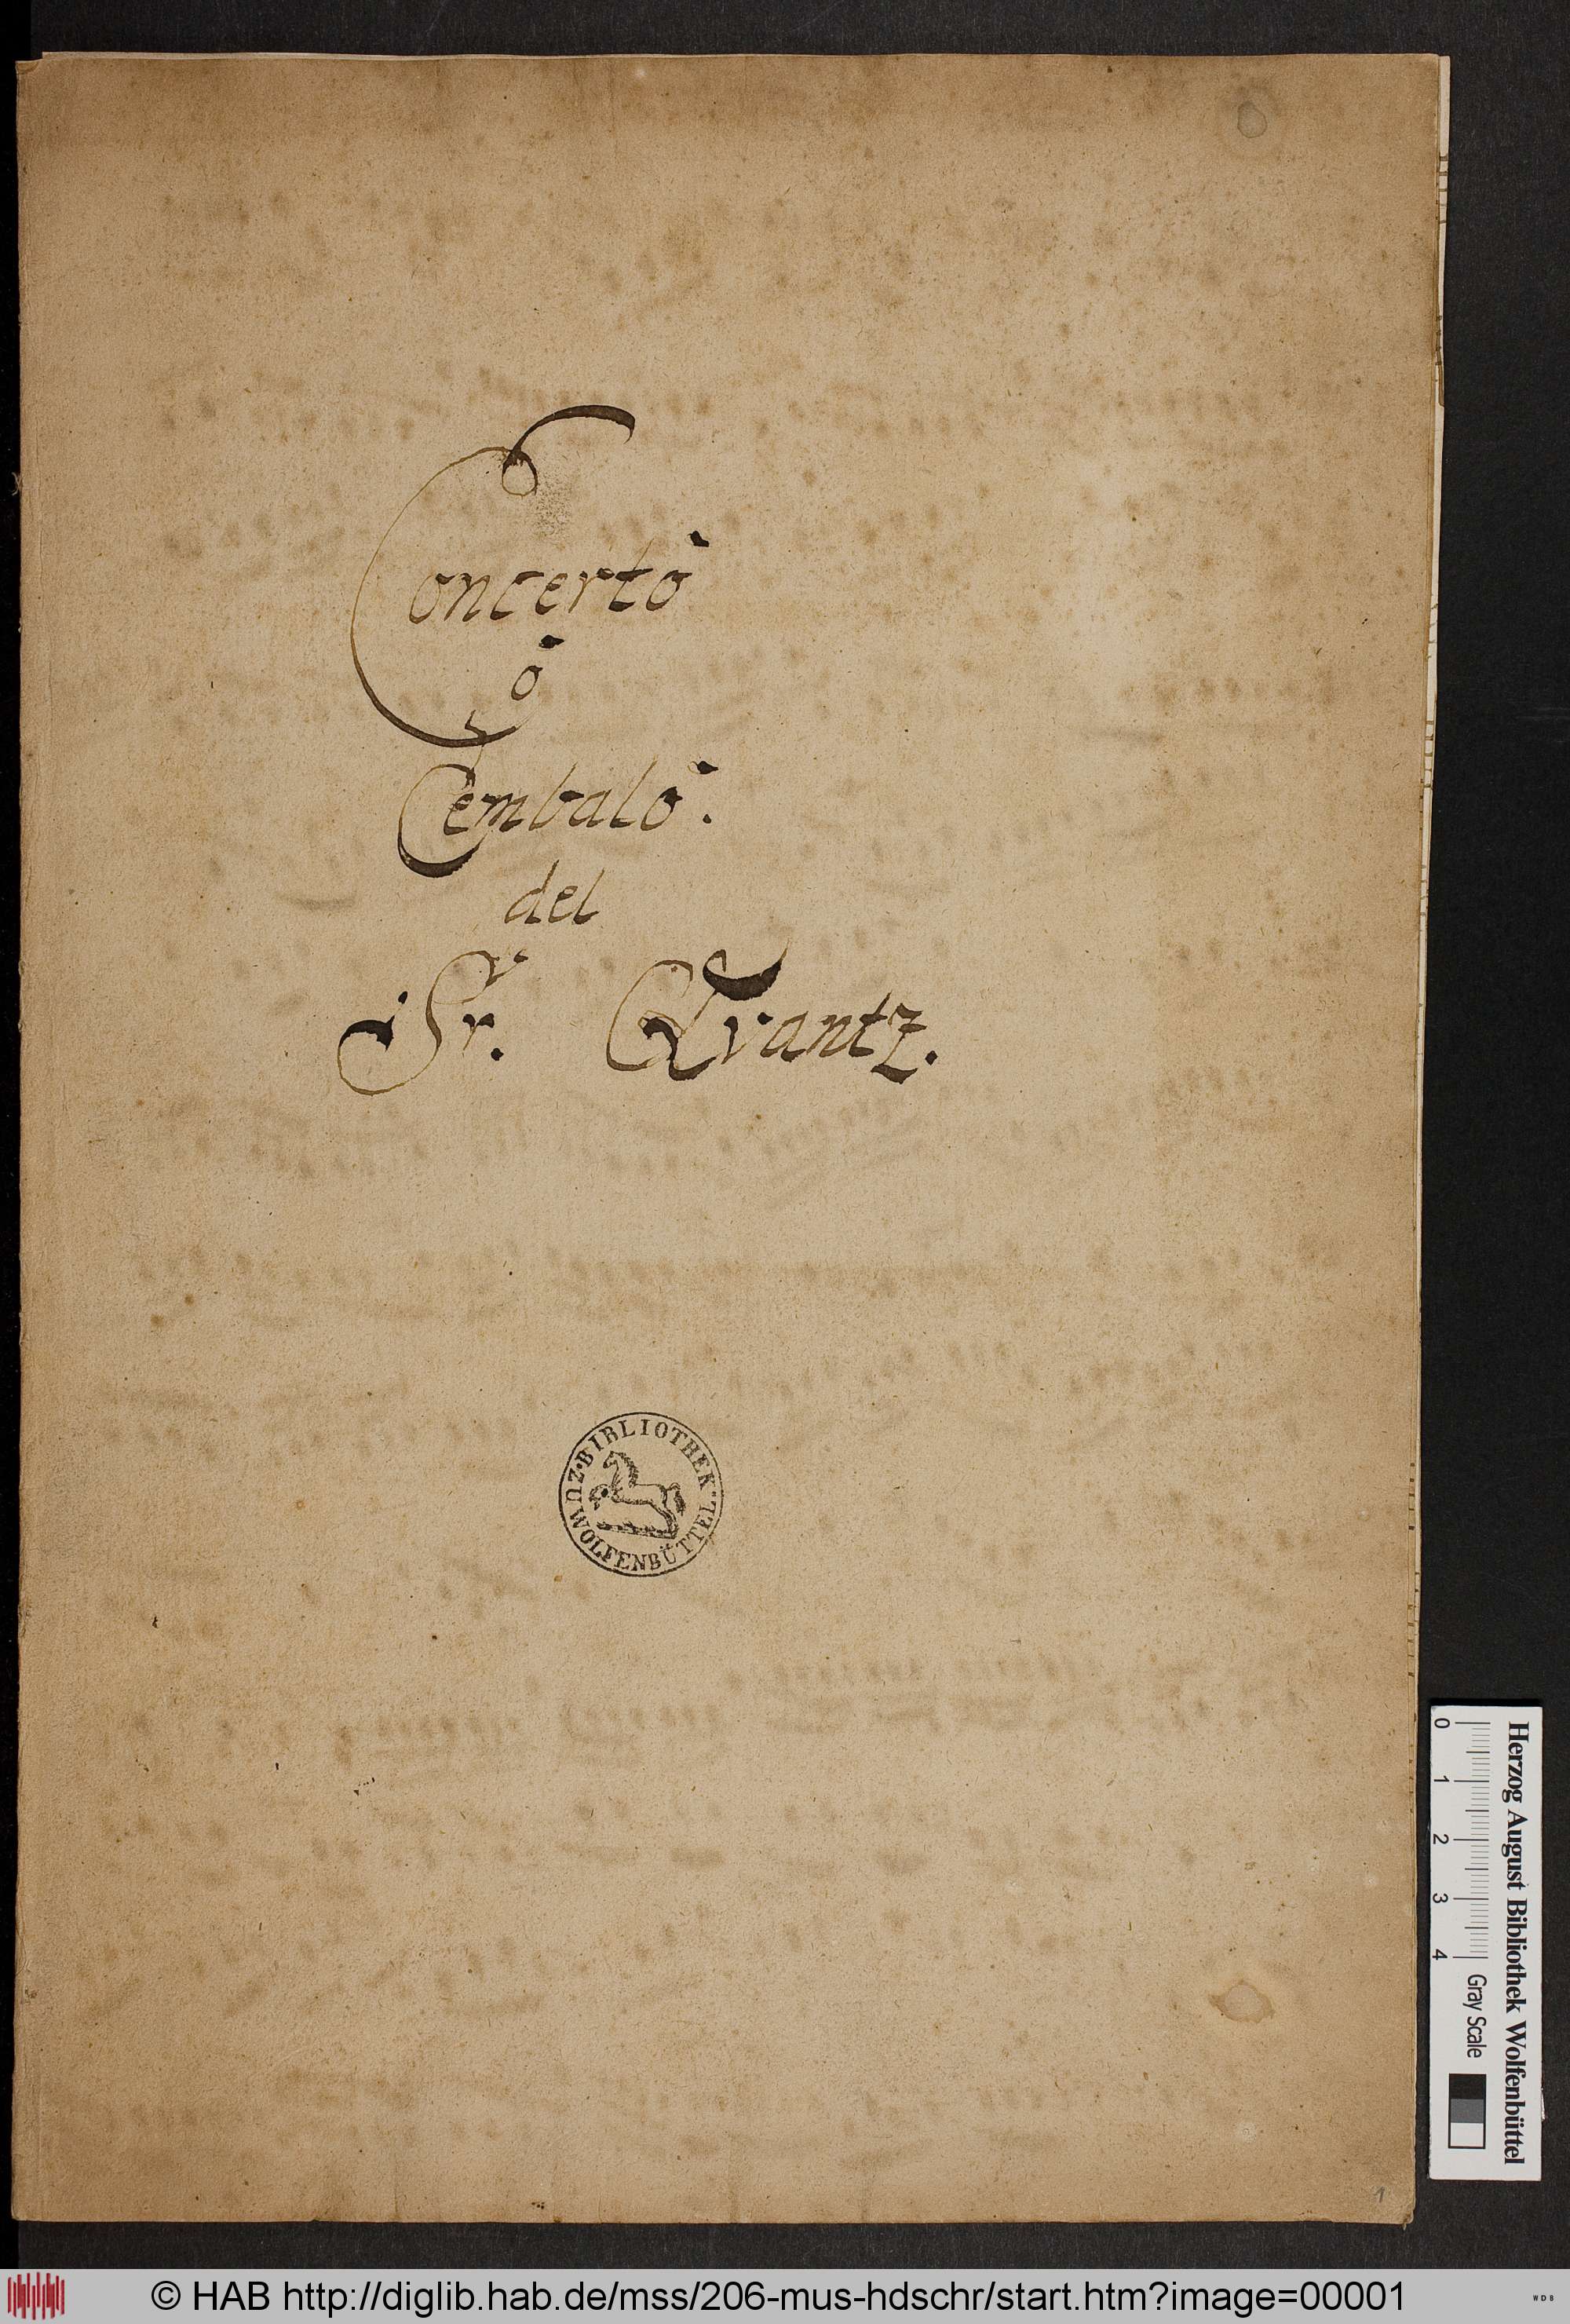 Concerto
ò
Cembalo.
del
Sr. Qvantz.
BIBLIOTHEK · ZU · WOLFENBÜTTEL ·
1
Herzog August Bibliothek Wolfenbüttel
0 1 2 3 4 Gray Scale
© HAB http://diglib.hab.de/mss/206-mus-hdschr/start.htm?image=00001
WDB